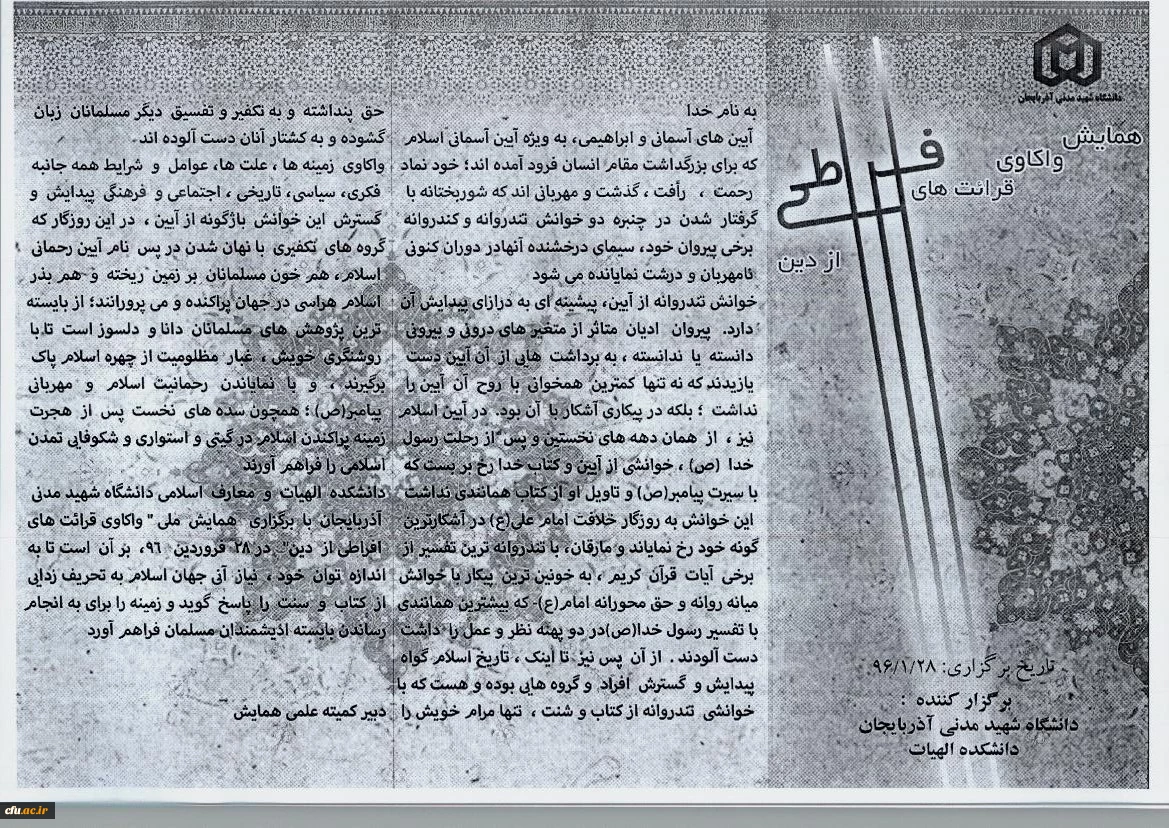 دانشگاه شهید مدنی آذربایجان
همایش
واکاوی
قرائت های
افراطی
از دین
تاریخ برگزاری: ۹۶/۱/۲۸
برگزار کننده :
دانشگاه شهید مدنی آذربایجان
دانشکده الهیات
به نام خدا
آیین های آسمانی و ابراهیمی، به ویژه آیین آسمانی اسلام
که برای بزرگداشت مقام انسان فرود آمده اند؛ خود نماد
رحمت ، رأفت ، گذشت و مهربانی اند که شوربختانه با
گرفتار شدن در چنبره دو خوانش تندروانه و کندروانه
برخی پیروان خود، سیمای درخشنده آنهادر دوران کنونی
نامهربان و درشت نمایانده می شود
خوانش تندروانه از آیین، پیشینه ای به درازای پیدایش آن
دارد. پیروان ادیان متاثر از متغیر های درونی و بیرونی
دانسته یا ندانسته ، به برداشت هایی از آن آیین دست
یازیدند که نه تنها کمترین همخوانی با روح آن آیین را
نداشت ؛ بلکه در پیکاری آشکار با آن بود. در آیین اسلام
نیز ، از همان دهه های نخستین و پس از رحلت رسول
خدا (ص) ، خوانشی از آیین و کتاب خدا رخ بر بست که
با سیرت پیامبر(ص) و تاویل او از کتاب همانندی نداشت
این خوانش به روزگار خلافت امام علی(ع) در آشکارترین
گونه خود رخ نمایاند و مارقان، با تندروانه ترین تفسیر از
برخی آیات قرآن کریم ، به خونین ترین پیکار با خوانش
میانه روانه و حق محورانه امام(ع)- که بیشترین همانندی
با تفسیر رسول خدا(ص)در دو پهنه نظر و عمل را داشت
دست آلودند . از آن پس نیز تا اینک ، تاریخ اسلام گواه
پیدایش و گسترش افراد و گروه هایی بوده و هست که با
خوانشی تندروانه از کتاب و سنت ، تنها مرام خویش را
حق پنداشته و به تکفیر و تفسیق دیگر مسلمانان زبان
گشوده و به کشتار آنان دست آلوده اند.
واکاوی زمینه ها ، علت ها، عوامل و شرایط همه جانبه
فکری، سیاسی، تاریخی ، اجتماعی و فرهنگی پیدایش و
گسترش این خوانش باژگونه از آیین ، در این روزگار که
گروه های تکفیری با نهان شدن در پس نام آیین رحمانی
اسلام ، هم خون مسلمانان بر زمین ریخته و هم بذر
اسلام هراسی در جهان پراکنده و می پرورانند؛ از بایسته
ترین پژوهش های مسلمانان دانا و دلسوز است تا با
روشنگری خویش ، غبار مظلومیت از چهره اسلام پاک
برگیرند ، و با نمایاندن رحمانیت اسلام و مهربانی
پیامبر(ص) ؛ همچون سده های نخست پس از هجرت
زمینه پراکندن اسلام در گیتی و استواری و شکوفایی تمدن
اسلامی را فراهم آورند
دانشکده الهیات و معارف اسلامی دانشگاه شهید مدنی
آذربایجان با برگزاری همایش ملی " واکاوی قرائت های
افراطی از دین" در ۲۸ فروردین ۹۶، بر آن است تا به
اندازه توان خود ، نیاز آنی جهان اسلام به تحریف زدایی
از کتاب و سنت را پاسخ گوید و زمینه را برای به انجام
رساندن بایسته اندیشمندان مسلمان فراهم آورد
دبیر کمیته علمی همایش
cfu.ac.ir